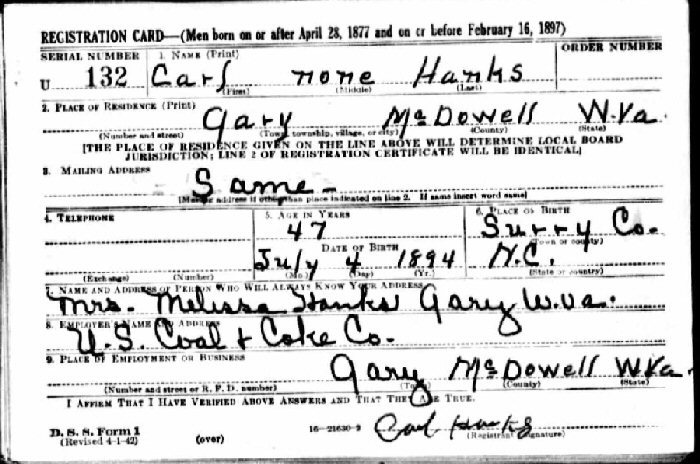 REGISTRATION CARD—(Men born on or after April 28, 1877 and on or before February 16, 1897)
SERIAL NUMBER 1. NAME (Print) ORDER NUMBER
U 132 Carl none Hanks
(First) (Middle) (Last)
2. PLACE OF RESIDENCE (Print)
Gary McDowell W.Va
(Number and street) (Town, township, village, or city) (County) (State)
[THE PLACE OF RESIDENCE GIVEN ON THE LINE ABOVE WILL DETERMINE LOCAL BOARD
JURISDICTION; LINE 2 OF REGISTRATION CERTIFICATE WILL BE IDENTICAL]
3. MAILING ADDRESS
Same -
[Mailing address if other than place indicated on line 2. If same insert word same]
4. TELEPHONE 5. AGE IN YEARS 6. PLACE OF BIRTH
47 Surry Co.
DATE OF BIRTH (Town or county)
July 4 1894 N.C.
(Exchange) (Number) (Mo.) (Day) (Yr.) (State or country)
7. NAME AND ADDRESS OF PERSON WHO WILL ALWAYS KNOW YOUR ADDRESS
Mrs. Melissa Hanks Gary W.Va.
8. EMPLOYER'S NAME AND ADDRESS
U.S. Coal & Coke Co.
9. PLACE OF EMPLOYMENT OR BUSINESS
Gary McDowell W.Va.
(Number and street or R. F. D. number) (Town) (County) (State)
I AFFIRM THAT I HAVE VERIFIED ABOVE ANSWERS AND THAT THEY ARE TRUE.
D. S. S. Form 1
(Revised 4-1-42) (over) 16-21630-2 Carl Hanks
(Registrant's signature)